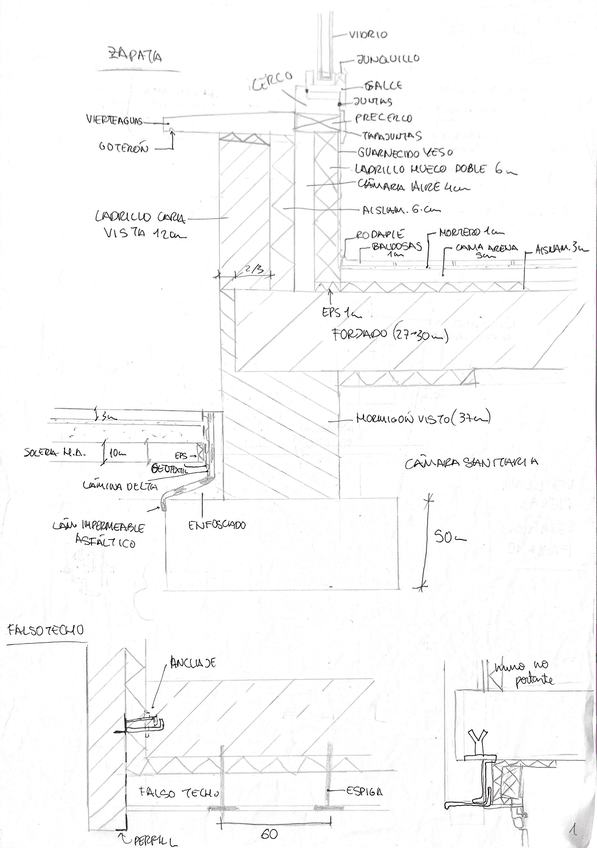 ZAPATA
VIDRIO
JUNQUILLO
CERCO
GALCE
JUNTAS
VIERTEAGUAS
PRECERCO
TAPAJUNTAS
GOTERÓN
GUARNECIDO YESO
LADRILLO HUECO DOBLE 6cm
CÁMARA AIRE 4cm
AISLAM. 6cm
LADRILLO CARA
VISTA 12cm
RODAPIÉ
BALDOSAS
1cm
MORTERO 1cm
CAMA ARENA
3cm
AISLAM. 3cm
2/3
EPS 1cm
FORJADO (27+30cm)
3cm
MORMIGÓN VISTO (37cm)
SOLERA M.A.
10cm
EPS
GEOTEXTIL
CÁMARA SANITARIA
LÁMINA DELTA
LÁM IMPERMEABLE
ASFÁLTICO
ENFOSCADO
50cm
FALSO TECHO
ANCLAJE
muro no
portante
FALSO TECHO
ESPIGA
60
PERFIL L
1